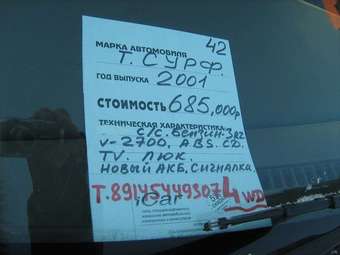 42
МАРКА АВТОМОБИЛЯ
Т. СУРФ.
ГОД ВЫПУСКА 2001
СТОИМОСТЬ 685,000р
ТЕХНИЧЕСКАЯ ХАРАКТЕРИСТИКА
С/С. БЕНЗИН-
V-2700, ABS. CD.
TV. ЛЮК.
НОВЫЙ АКБ, СИГНАЛКА.
Т.89145449307 4WD
iCar